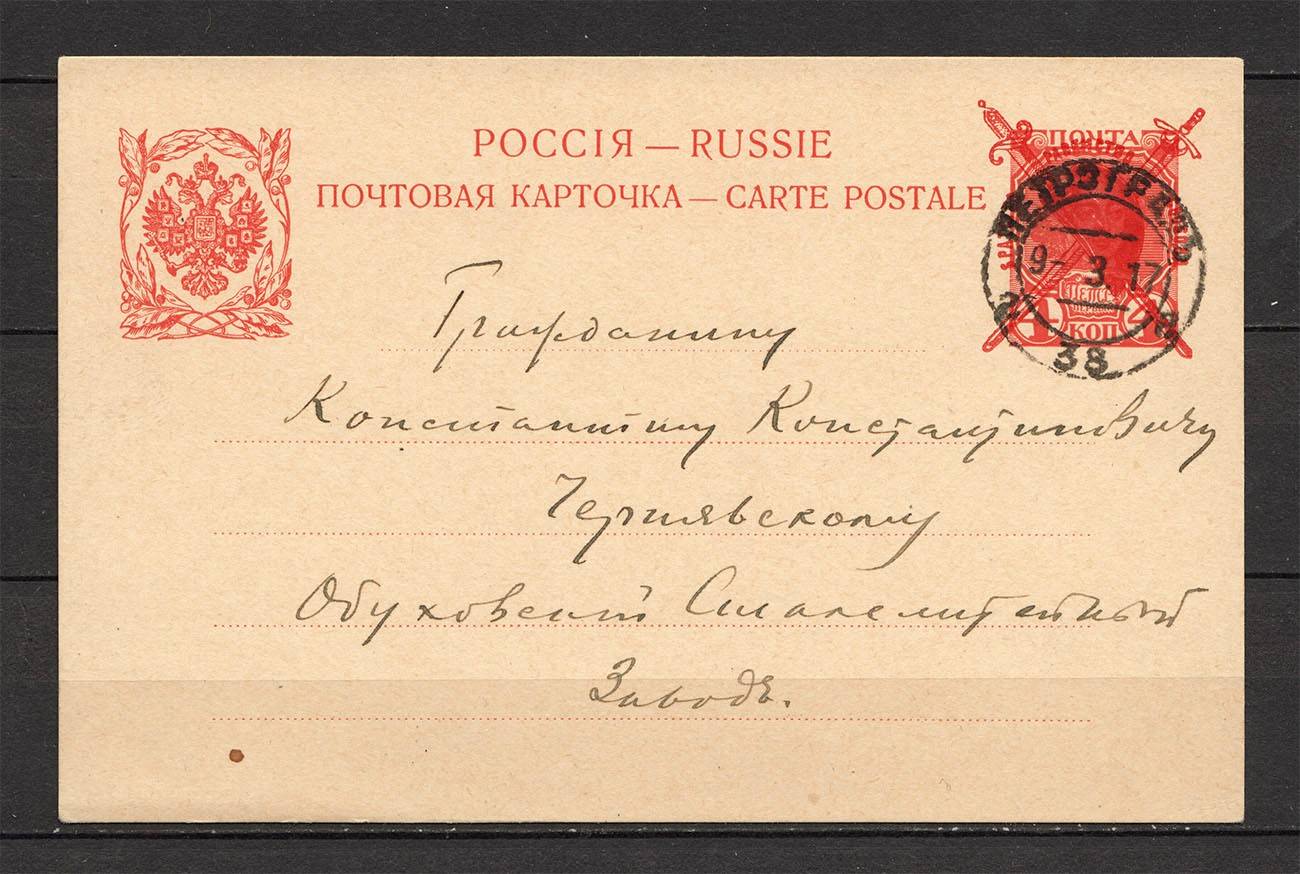 РОССІЯ — RUSSIE
ПОЧТОВАЯ КАРТОЧКА — CARTE POSTALE
ПОЧТА
ПЕТРОГРАДЪ
9-3.17
38
4 КОП 4
Гражданину
Константину Константиновичу
Чернявскому
Обуховский Сталелитейный
Заводъ.